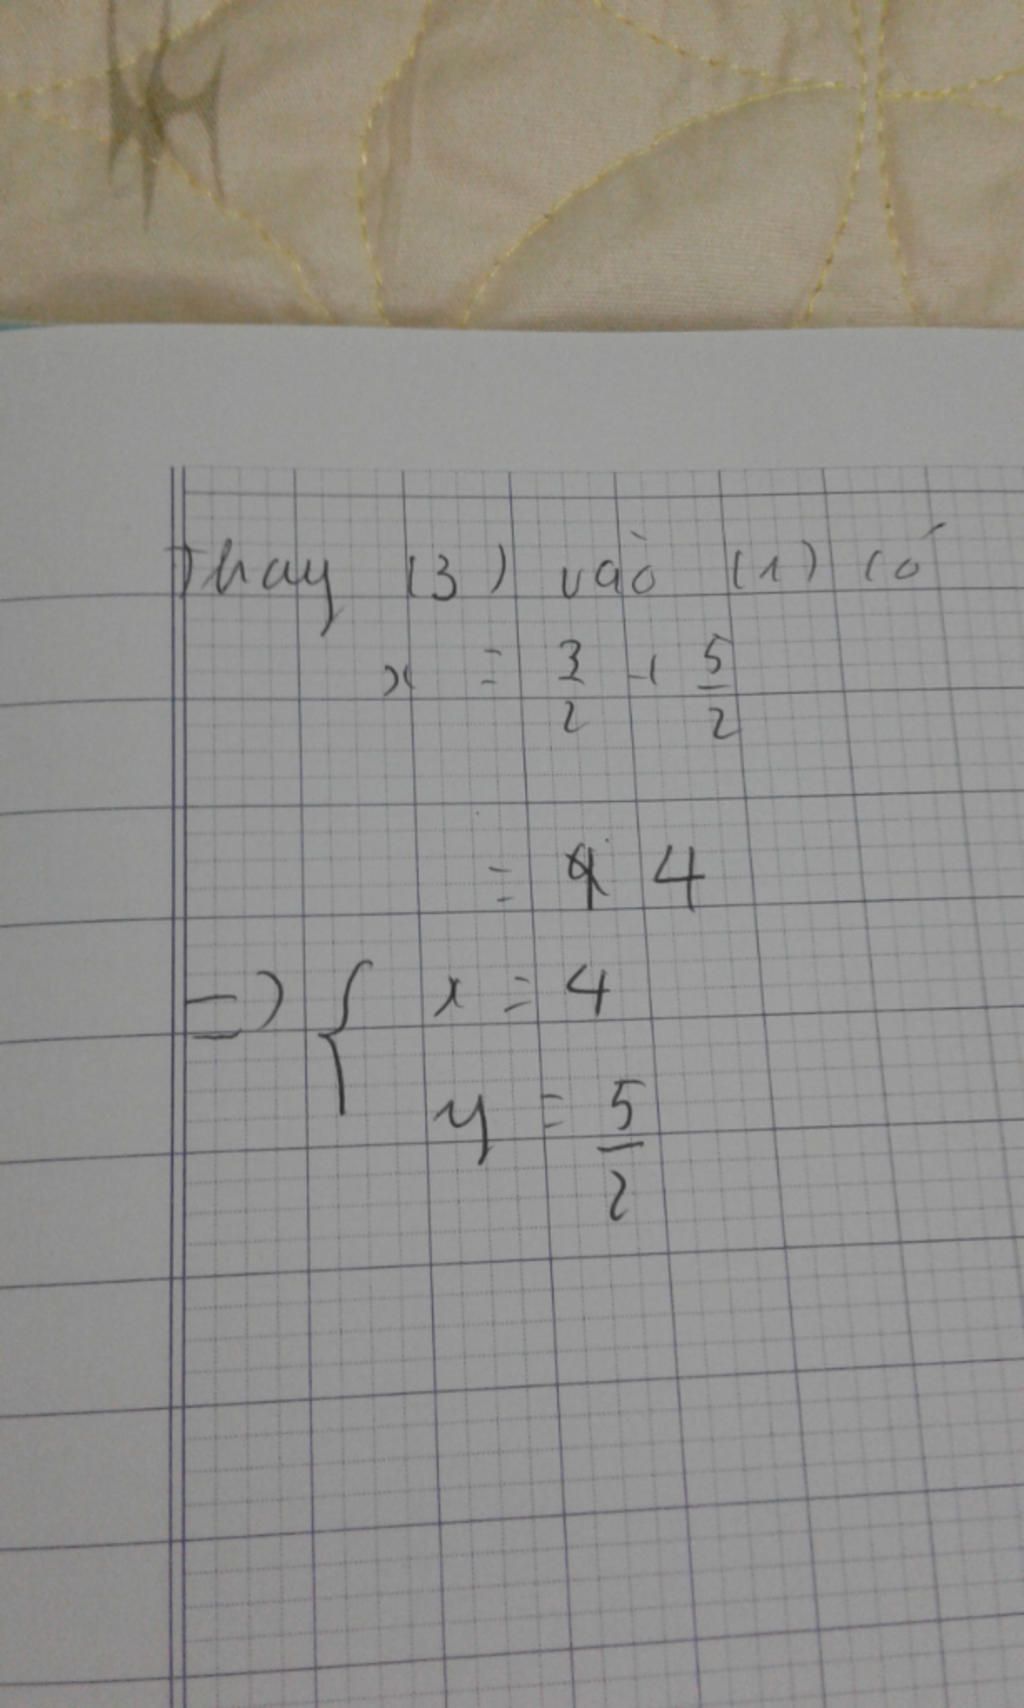 Thay (3) vào (1) có
x = 3/2 + 5/2
= 4
=> { x = 4
y = 5/2